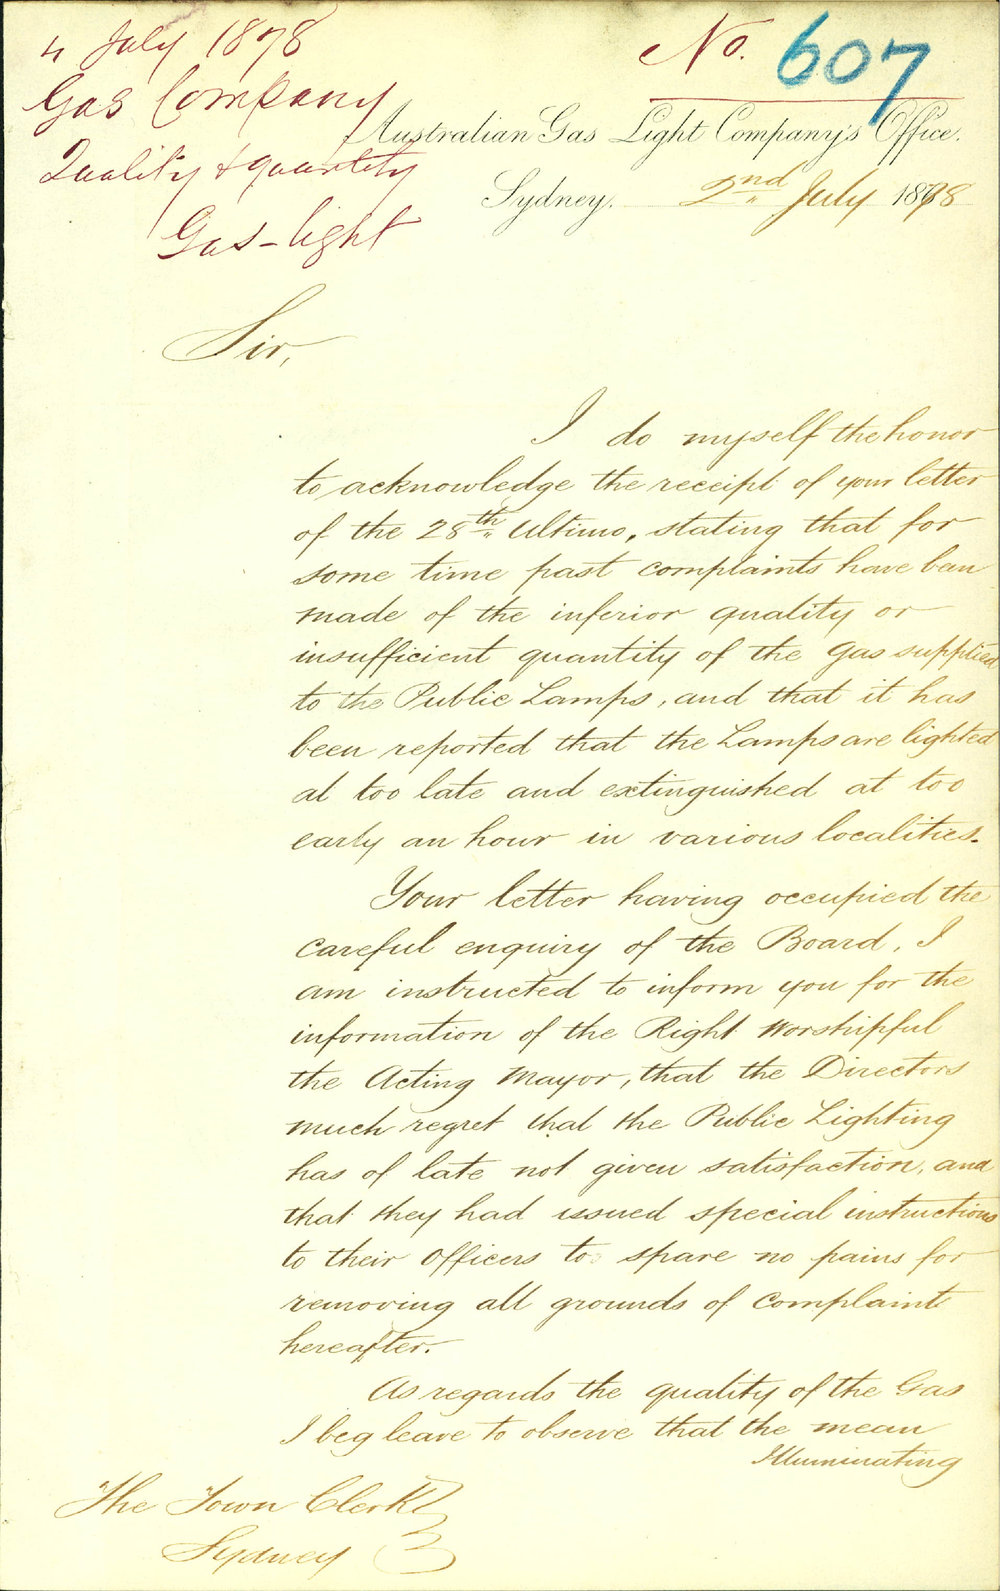 4 July 1878
No. 607
Gas Company
Australian Gas Light Company's Office.
Quality & quantity
Sydney. 2nd July 1878
Gas-light
Sir,
I do myself the honor
to acknowledge the receipt of your letter
of the 28th Ultimo, stating that for
some time past complaints have been
made of the inferior quality or
insufficient quantity of the Gas supplied
to the Public Lamps, and that it has
been reported that the Lamps are lighted
at too late and extinguished at too
early an hour in various localities.
Your letter having occupied the
careful enquiry of the Board, I
am instructed to inform you for the
information of the Right Worshipful
the Acting Mayor, that the Directors
much regret that the Public Lighting
has of late not given satisfaction, and
that they had issued special instructions
to their Officers to spare no pains for
removing all grounds of Complaint
hereafter.
As regards the quality of the Gas
I beg leave to observe that the mean
Illuminating
The Town Clerk
Sydney